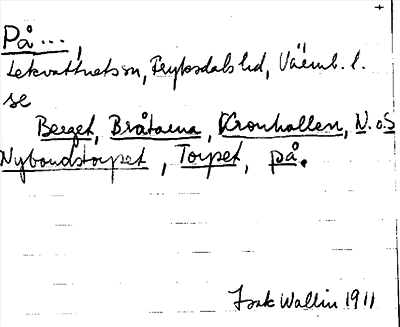 På...,
Lekvattnets sn, Fryksdals hd, Värml. l.
se
Berget, Bråtarna, Kronhallen, N. o S
Nybondstorpet, Torpet, på.
Isak Wallin 1911